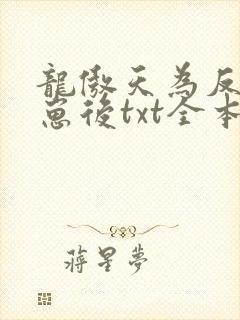 龍傲天為反
崽後txt全本
蔣星夢